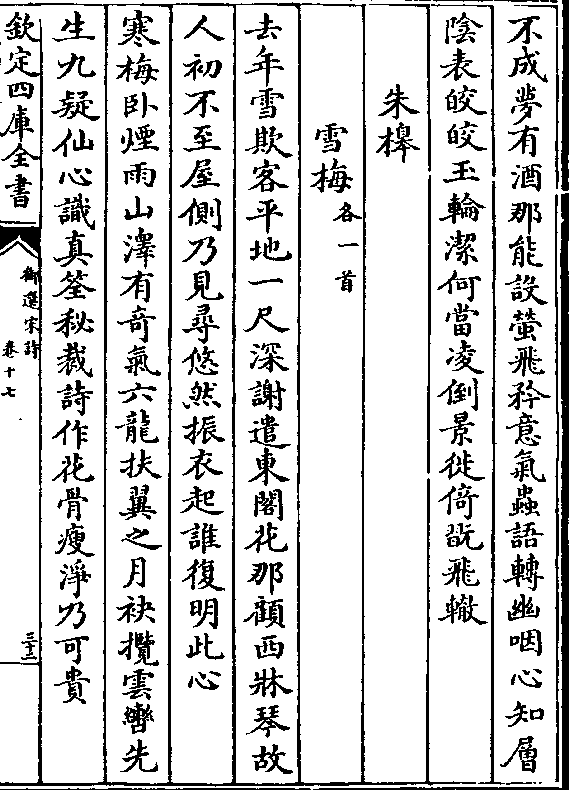 不成夢有酒那能設螢飛矜意氣蟲語轉幽咽心知層
陰表皎皎玉輪潔何當凌倒景徙倚翫飛轍
朱槔
雪梅各一首
去年雪欺客平地一尺深謝遣東閣花那顧西牀琴故
人初不至屋側乃見尋悠然振衣起誰復明此心
寒梅卧煙雨山澤有奇氣六龍扶翼之月袂攬雲轡先
生九疑仙心識真筌秘裁詩作花骨瘦淨乃可貴
欽定四庫全書
御選宋詩
卷十七
三十二